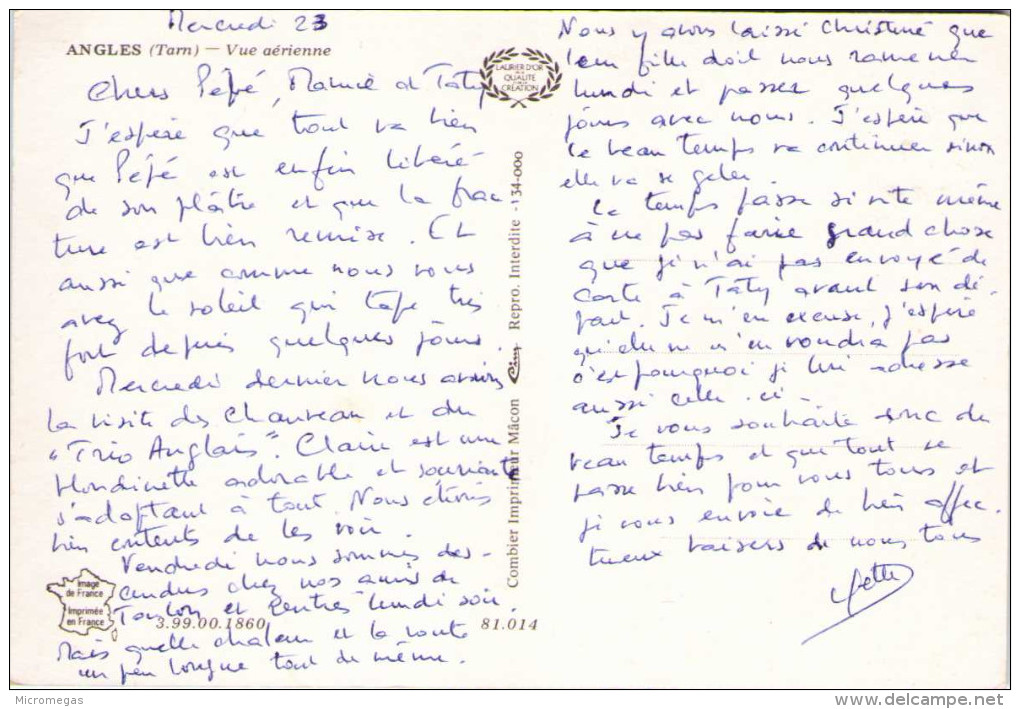 Mercredi 23
ANGLES (Tarn) — Vue aérienne
Chers Pépé, Mamie et Taty
J'espère que tout va bien
que Pépé est enfin libéré
de son plâtre et que la frac
ture est bien remise. Et
aussi que comme nous vous
avez le soleil qui tape très
fort depuis quelques jours.
Mercredi dernier nous avions
la visite des Chauveau et du
"Trio Anglais". Claire est une
blondinette adorable et souriante
s'adaptant à tout. Nous étions
bien contents de les voir.
Vendredi nous sommes des-
cendus chez nos amis de
Toulon et rentrés lundi soir.
Mais quelle chaleur et la route
un peu longue tout de même.
Image
de France
Imprimée
en France
3.99.00.1860
81.014
LAURIER D'OR
DE LA
QUALITÉ
CRÉATION
Combier Imprimeur Mâcon Cim Repro. Interdite - 134-000
Nous y avons laissé Christine que
leur fille doit nous ramener
lundi et passer quelques
jours avec nous. J'espère que
le beau temps va continuer sinon
elle va se geler.
Le temps passe si vite même
à ne pas faire grand chose
que je n'ai pas envoyé de
carte à Taty avant son dé-
part. Je m'en excuse, j'espère
qu'elle ne m'en voudra pas
c'est pourquoi je lui adresse
aussi celle-ci.
Je vous souhaite donc du
beau temps et que tout se
passe bien pour vous tous et
je vous envoie de bien affec.
tueux baisers de nous tous
Micromegas
www.delcampe.net